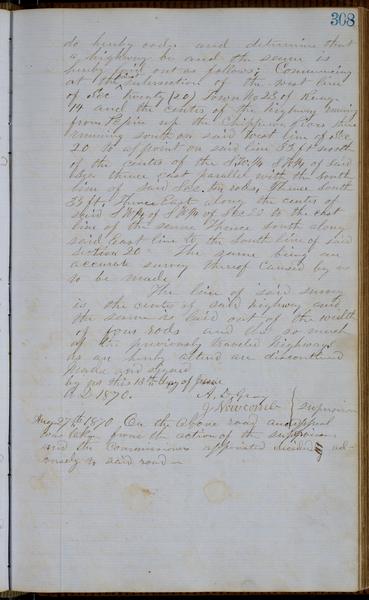 308
do hereby order and determine that
a highway be and the same is
hereby laid out as follows; Commencing
at the intersection of the west line
of Sec twenty (20) Town No 23 of Range
14 and the center of the highway running
from Pepin up the Chippewa River thence
running south on said west line of Sec
20 to a point on said line 33 ft north
of the center of the S.W.¼ S.W.¼ of said
thence east parallel with the south
line of said Sec. rods, thence south
33 ft, thence East along the center of
said S.W.¼ of S.W.¼ of Sec 20 to the east
line of the same thence south along
said east line to the south line of said
section 20 The same being an
accurate survey thereof caused by us
to be made
The line of said survey
is the center of said highway and
the same is laid out of the width
of four rods and also so much
of the previously traveled highway
as are hereby altered are discontinued
Made and signed
by us this 13th day of June
A.D. 1870. A. D. Gray
J Newcomb } supervisors
Aug 27th 1870 On the above road an appeal
was taken from the action of the supervisors
and the Commissioners appointed decided ad-
versely to said road —